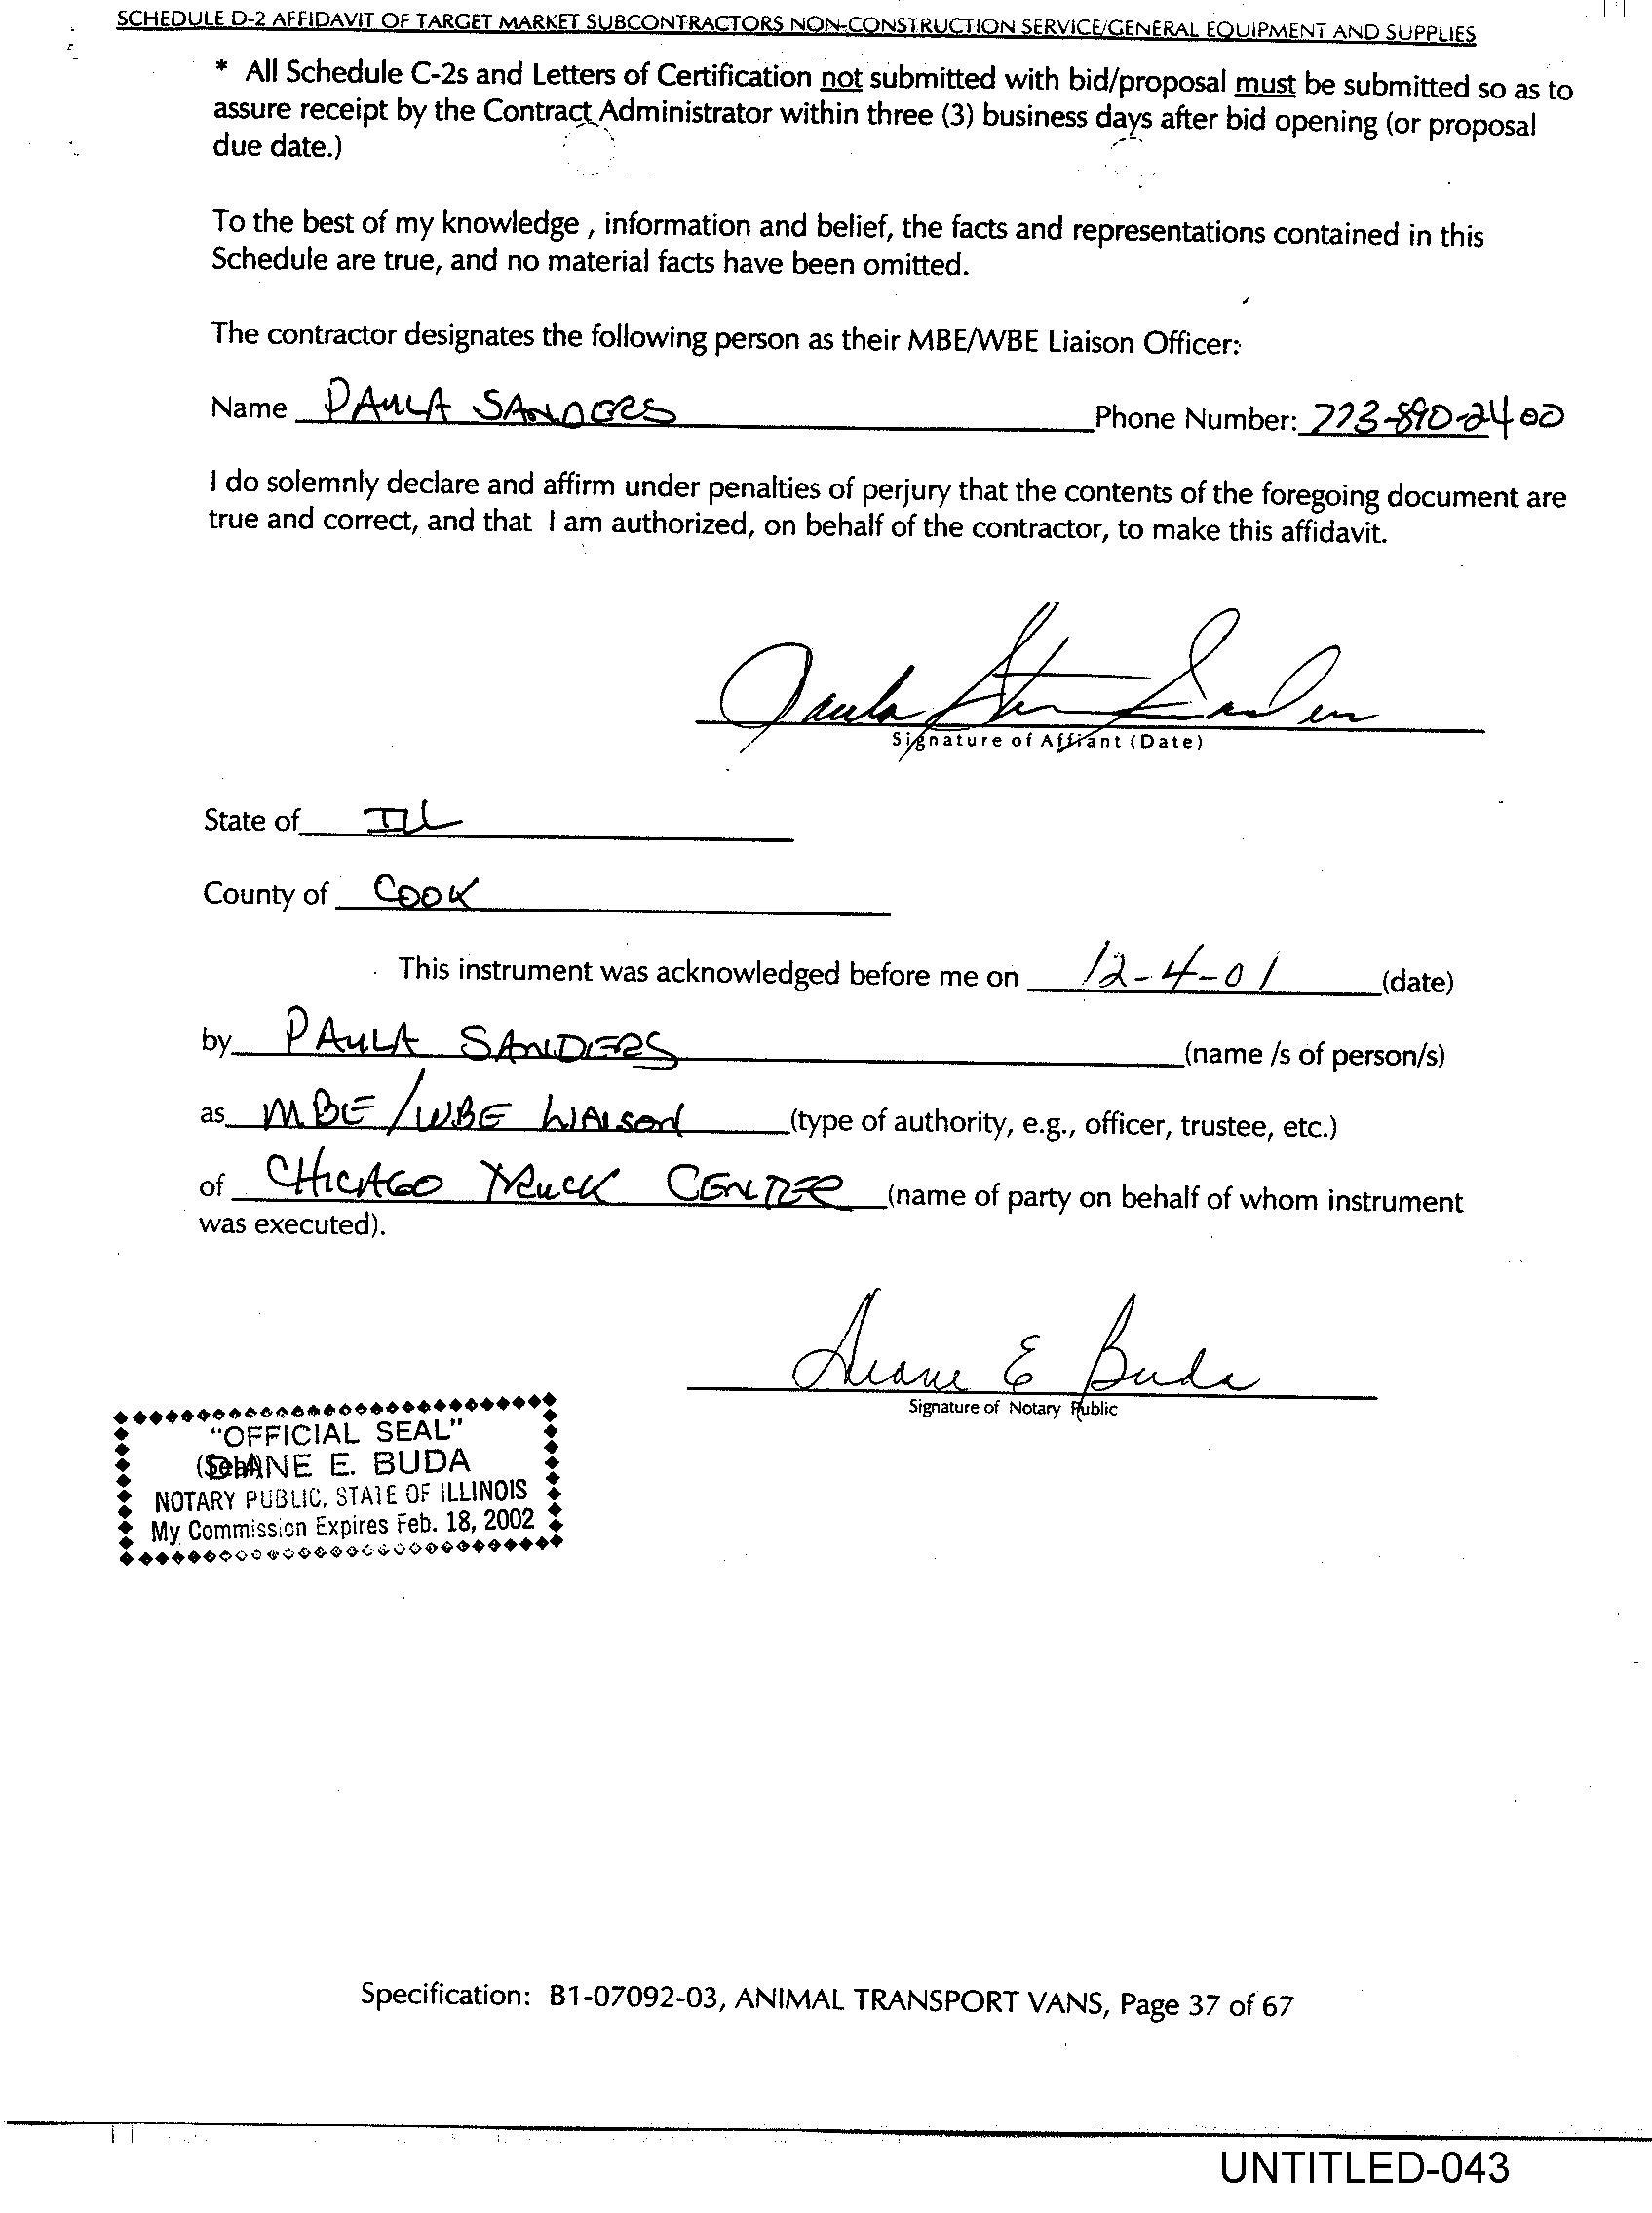 SCHEDULE D-2 AFFIDAVIT OF TARGET MARKET SUBCONTRACTORS NON-CONSTRUCTION SERVICE/GENERAL EQUIPMENT AND SUPPLIES
* All Schedule C-2s and Letters of Certification not submitted with bid/proposal must be submitted so as to
assure receipt by the Contract Administrator within three (3) business days after bid opening (or proposal
due date.)
To the best of my knowledge , information and belief, the facts and representations contained in this
Schedule are true, and no material facts have been omitted.
The contractor designates the following person as their MBE/WBE Liaison Officer:
Name PAULA SANDERS Phone Number: 773-890-2400
I do solemnly declare and affirm under penalties of perjury that the contents of the foregoing document are
true and correct, and that I am authorized, on behalf of the contractor, to make this affidavit.
Paula Sanders
Signature of Affiant (Date)
State of ILL
County of COOK
This instrument was acknowledged before me on 12-4-01 (date)
by PAULA SANDERS (name /s of person/s)
as MBE/WBE LIAISON (type of authority, e.g., officer, trustee, etc.)
of CHICAGO TRUCK CENTER (name of party on behalf of whom instrument
was executed).
Diane E Buda
Signature of Notary Public
"OFFICIAL SEAL"
(Seal) DIANE E. BUDA
NOTARY PUBLIC, STATE OF ILLINOIS
My Commission Expires Feb. 18, 2002
Specification: B1-07092-03, ANIMAL TRANSPORT VANS, Page 37 of 67
UNTITLED-043